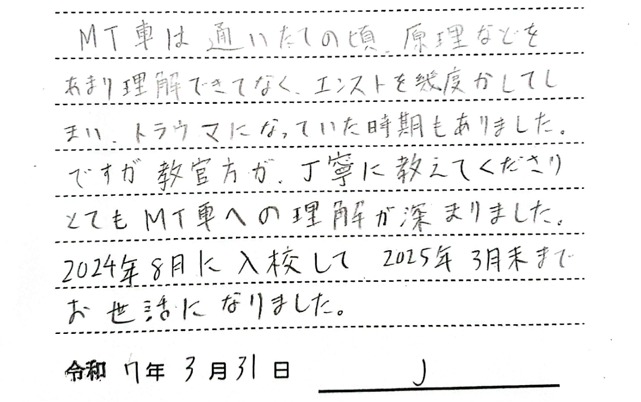 MT車は通いたての頃、原理などを
あまり理解できてなく、エンストを幾度かしてし
まい、トラウマになっていた時期もありました。
ですが教官方が、丁寧に教えてくださり
とてもMT車への理解が深まりました。
2024年8月に入校して 2025年3月末まで
お世話になりました。
令和 7年 3月31日 J